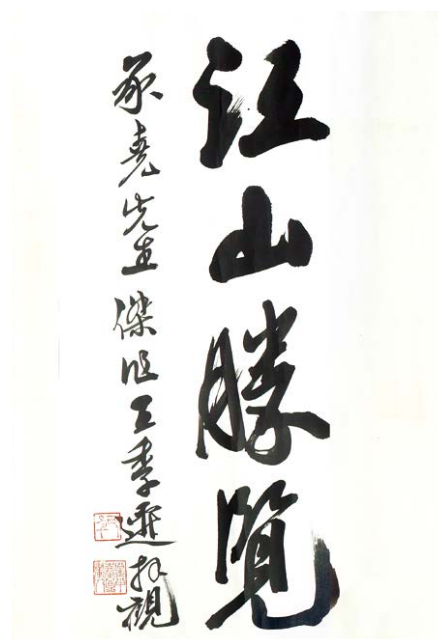 江山勝覽
承堯先生傑作王季遷拜觀